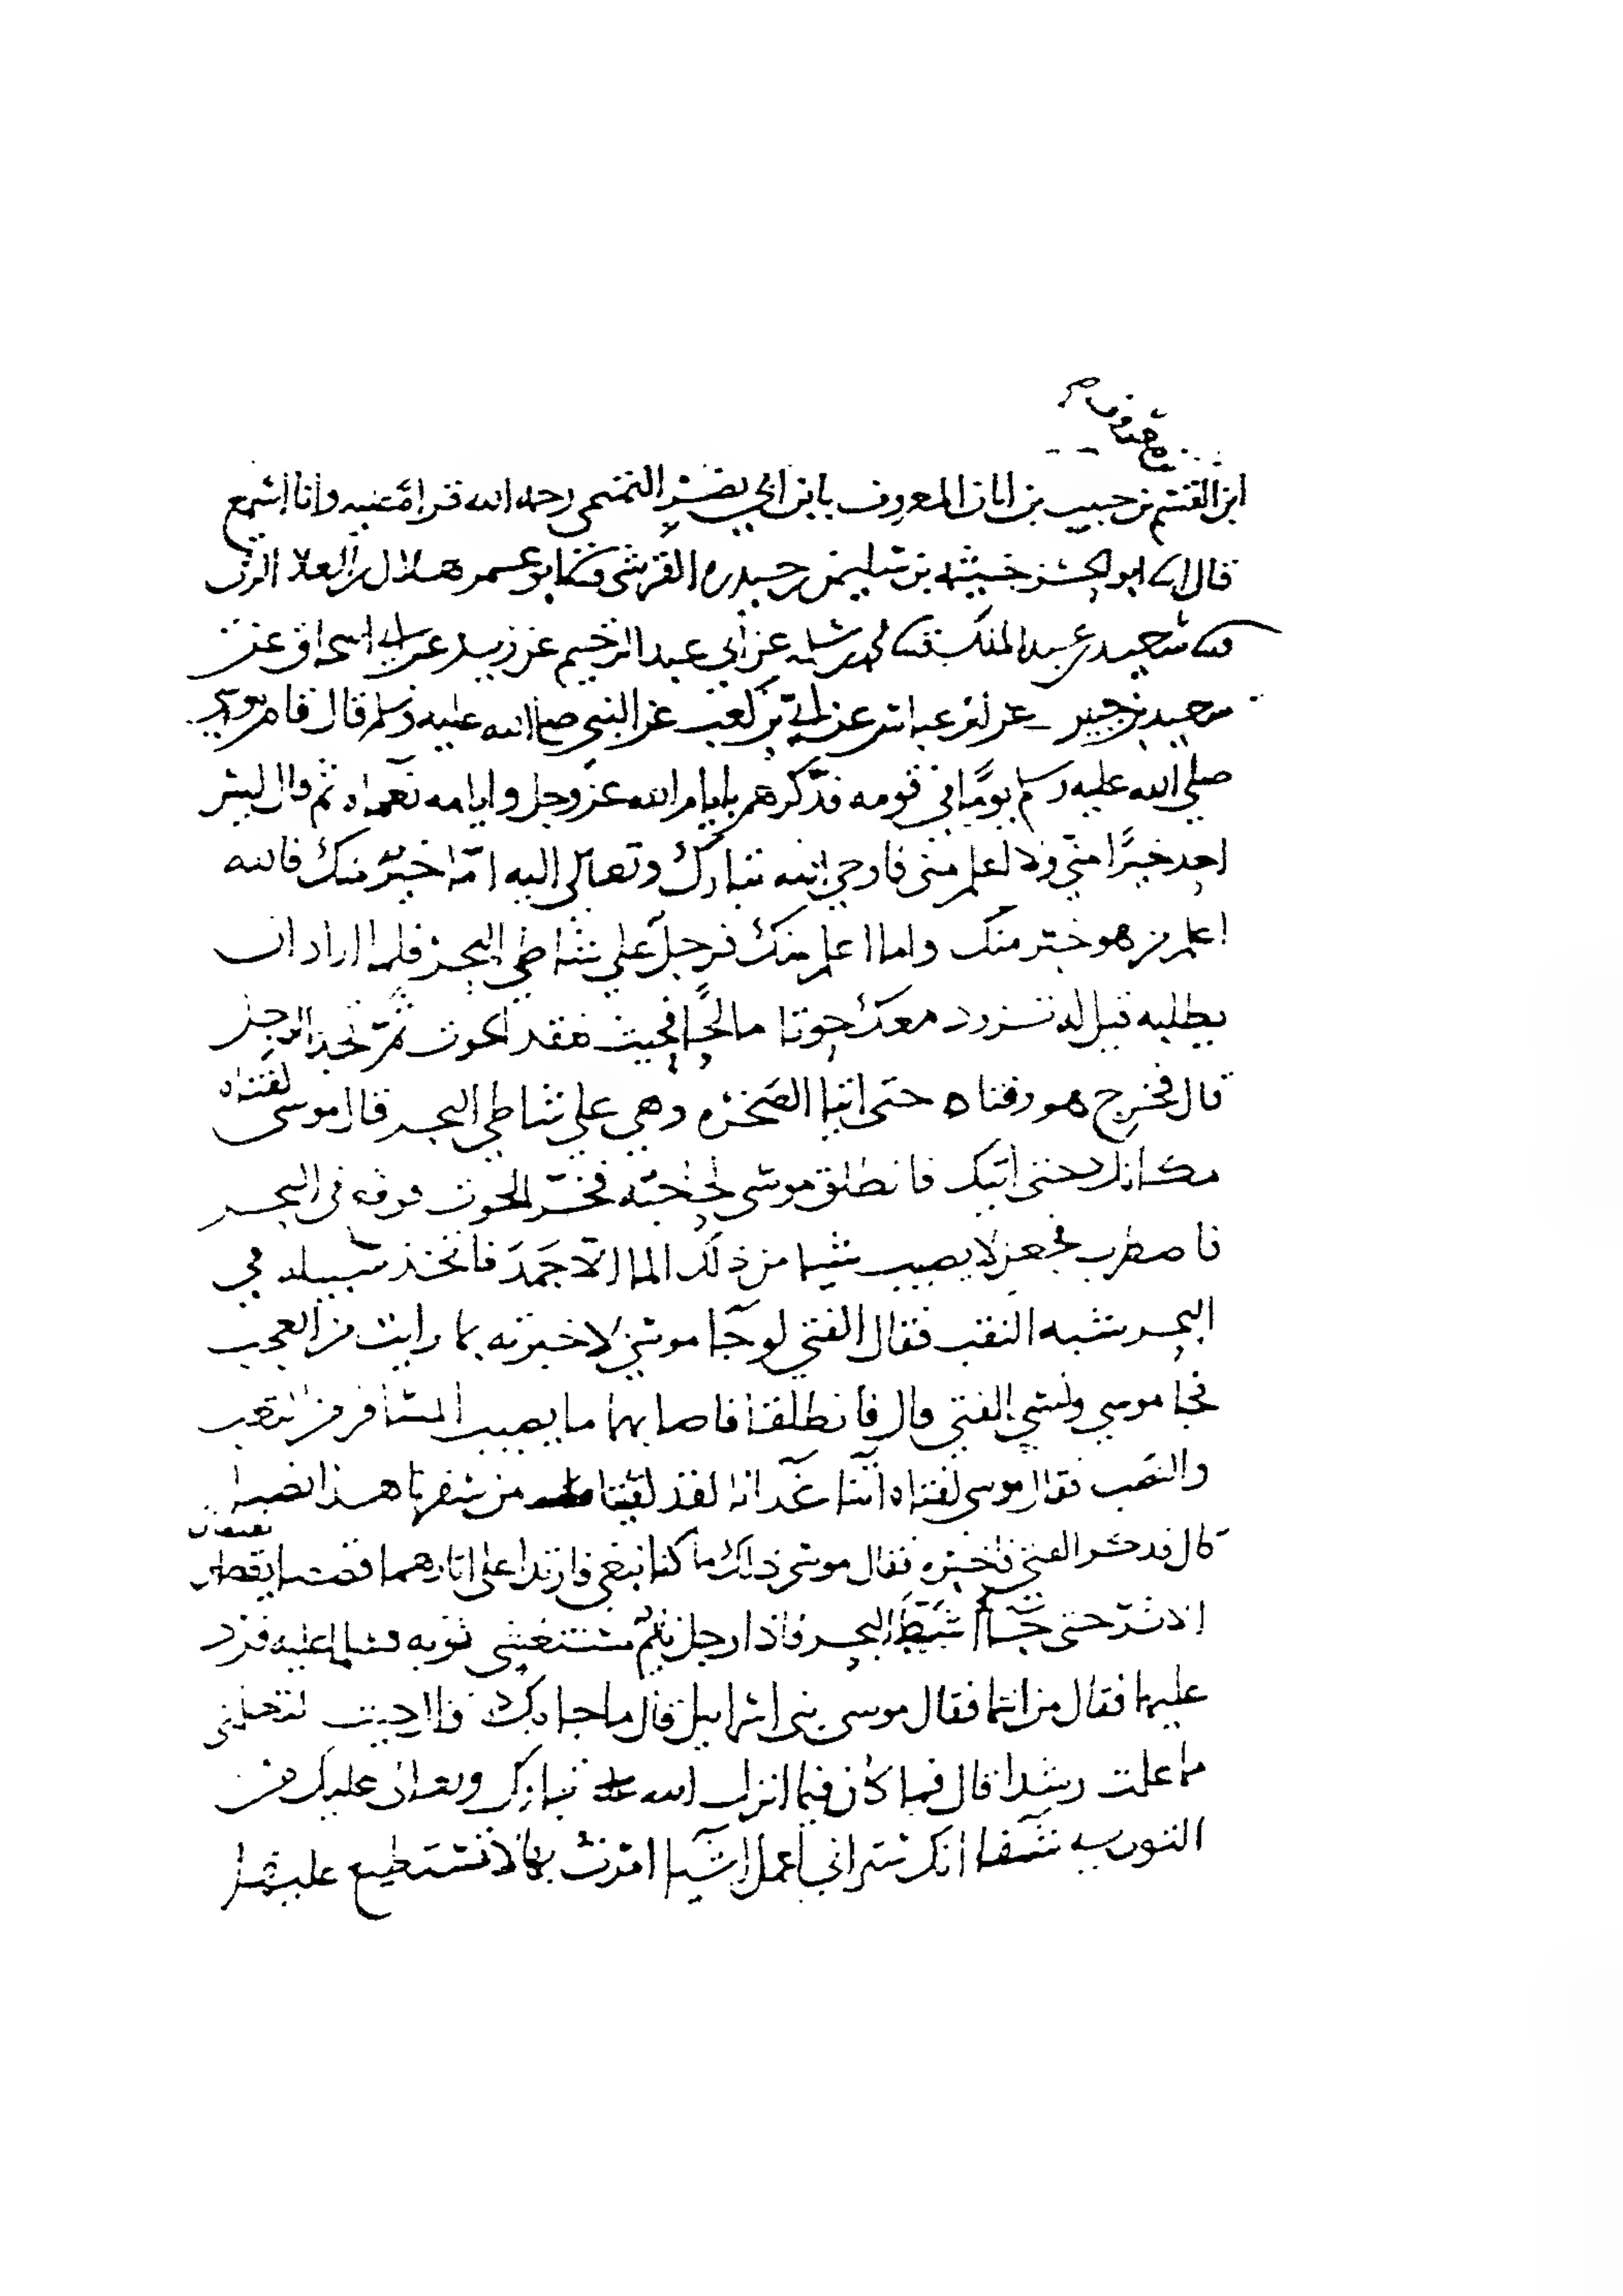 ابن القسم بن حبيب بن ابان المعروف بابن ابي نصر التميمي رحمه الله قراة عليه وانا اسمع
قال ابو الحسن خيثمة بن سليمن بن حيدرة القرشي ابو عمر هلال بن العلا الرقي
سعيد بن عبد الملك محمد بن سلمه عن ابي عبد الرحيم عن زيد عن ابي اسحاق عن
سعيد بن جبير عن ابن عباس عن ابي بن كعب عن النبي صلى الله عليه وسلم قال قام موسى
صلي الله عليه وسلم يوما في قومه فذكرهم بايام الله عز وجل وايامه نعماه ثم قال ليس
احد خيرا مني ولا اعلم مني فاوحي الله تبارك وتعالى اليه اما خير منك فالله
اعلم من هو خير منك واما اعلم منك فرجل على شاطي البحر فلما اراد ان
يطلبه قيل له تزود معك حوتا مالحا فحيث تفقد الحوت ثم تجد الرجل
قال فخرج هو وفتاه حتى اتيا الصخرة وهي علي شاطي البحر قال موسى لفتاه
مكانك حتى اتيك فانطلق موسى لحاجته فخر الحوت فوقع في البحر
فاضطرب فجعل لا يصيب شيا من ذلك الما الا جمد فاتخذ سبيله في
البحر شبه النقب فقال الفتي لو جا موسى لاخبرته بما رايت من العجب
فجا موسي ونسي الفتي قال فانطلقا فاصابهما ما يصيب المسافر من التعب
والنصب فقال موسى لفتاه اتنا غدانا لقد لقينا من سفرنا هذا نصبا
قال فذكر الفتى فاخبره فقال موسى ذلك ما كنا نبغي فارتدا على اثارهما قصصا يقصان
الاثر حتى جاا شط البحر فاذا رجل نائم مستغشي ثوبه فسلما عليه فرد
عليهما فقال من انتما فقال موسى بني اسرائيل قال ما جا بك قال جيت لتعلمني
مما علمت رشدا قال فما كان فيما انزل الله تبارك وتعالى عليك من
التوريه شفا انك ستراني اعمل اشيا امرت بها لا تستطيع عليها صبرا